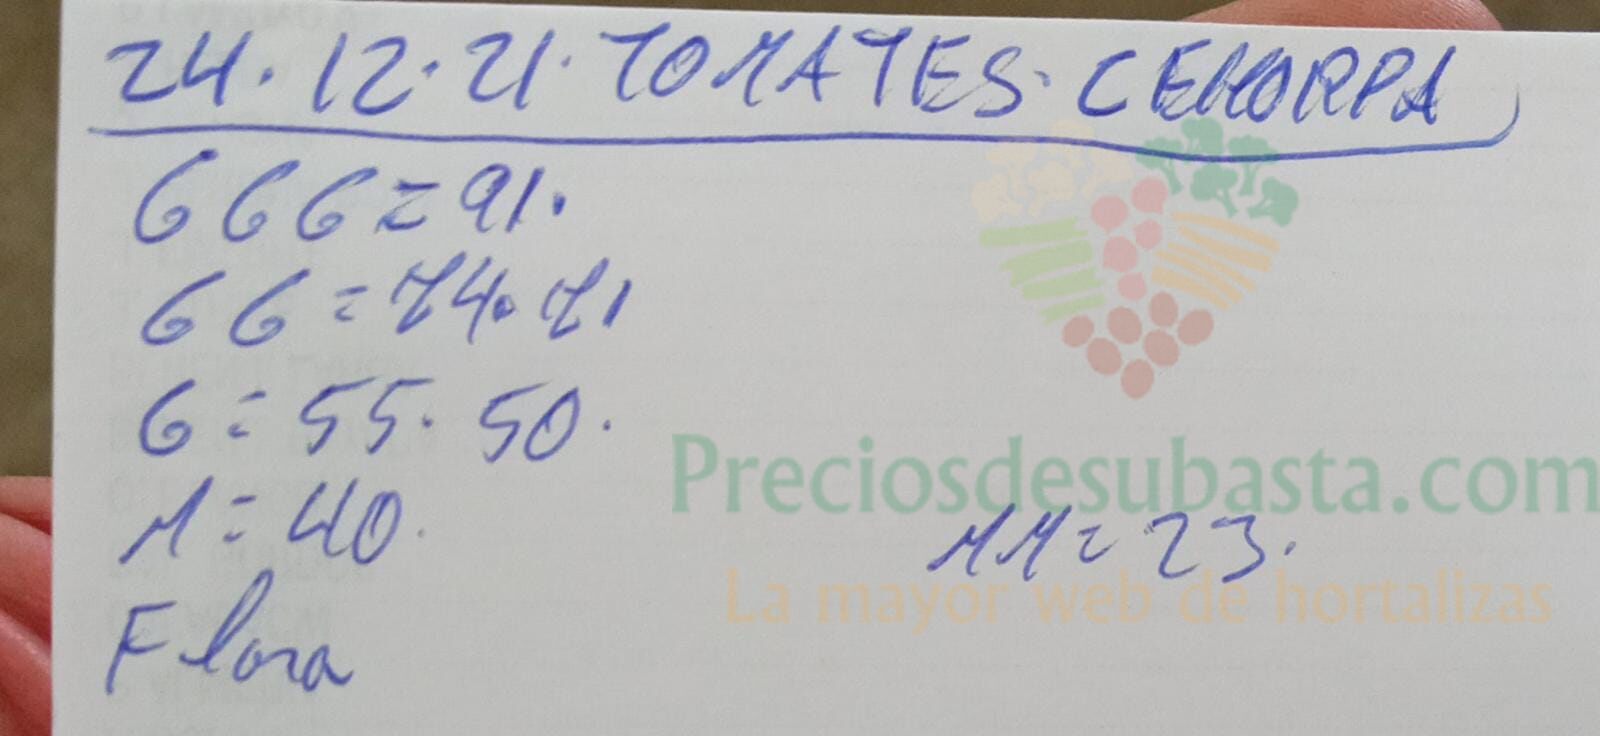 24.12.21. TOMATES. CEHORPA
GGG = 91.
GG = 74. 71
G = 55. 50.
Preciosdesubasta.com
M = 40.
MM = 23.
La mayor web de hortalizas
Flora